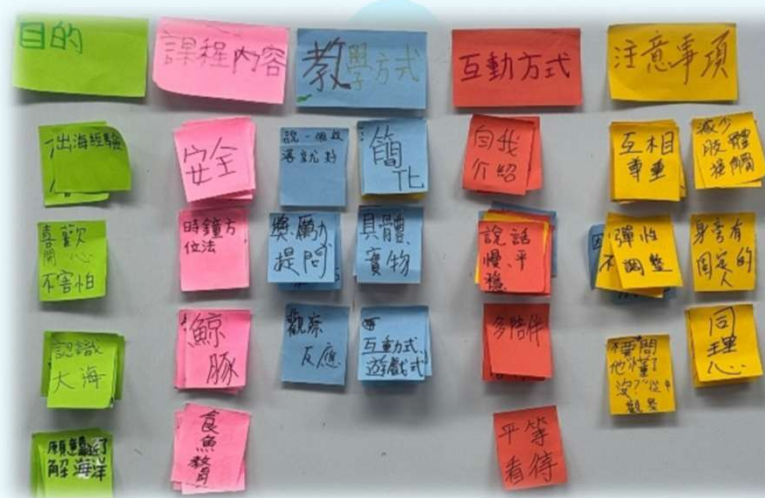 目的
出海經驗
喜歡
開心
不害怕
認識
大海
願意
解海洋
課程內容
安全
時鐘方
位法
鯨
豚
食
魚
教
育
教學方式
說一個段
落就好
獎勵
提問
觀察
反應
簡
化
具體
實物
互動式
遊戲式
互動方式
自我
介紹
說話
慢、平
穩
多陪伴
平等
看待
注意事項
互相
尊重
彈性
調整
不
要問
他懂了
沒?
觀察
減少
肢體
接觸
身旁有
固定的
人
同
理
心